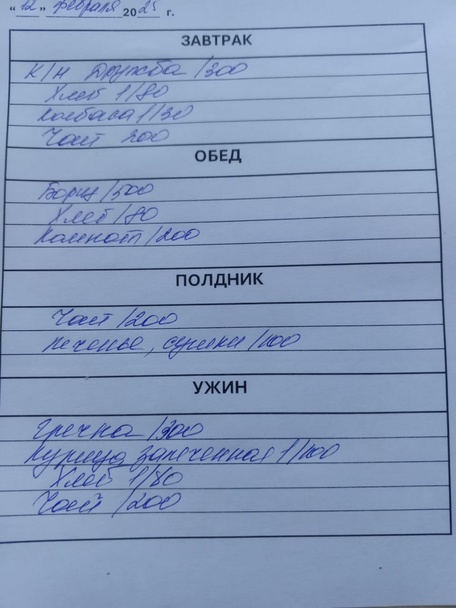 "12" февраля 2025 г.
ЗАВТРАК
К/н Дружба /300
Хлеб 1/80
Колбаса 1/30
Чай 200
ОБЕД
Борщ /500
Хлеб /80
Компот /200
ПОЛДНИК
Чай /200
печенье, сушки /100
УЖИН
Гречка /300
Курица запеченная 1/100
Хлеб 1/80
Чай /200